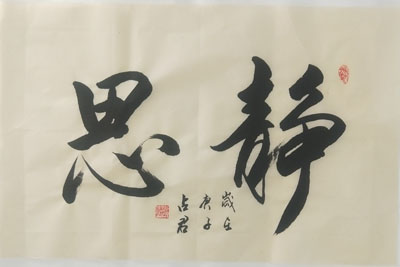 静思
歲在
庚子
占君